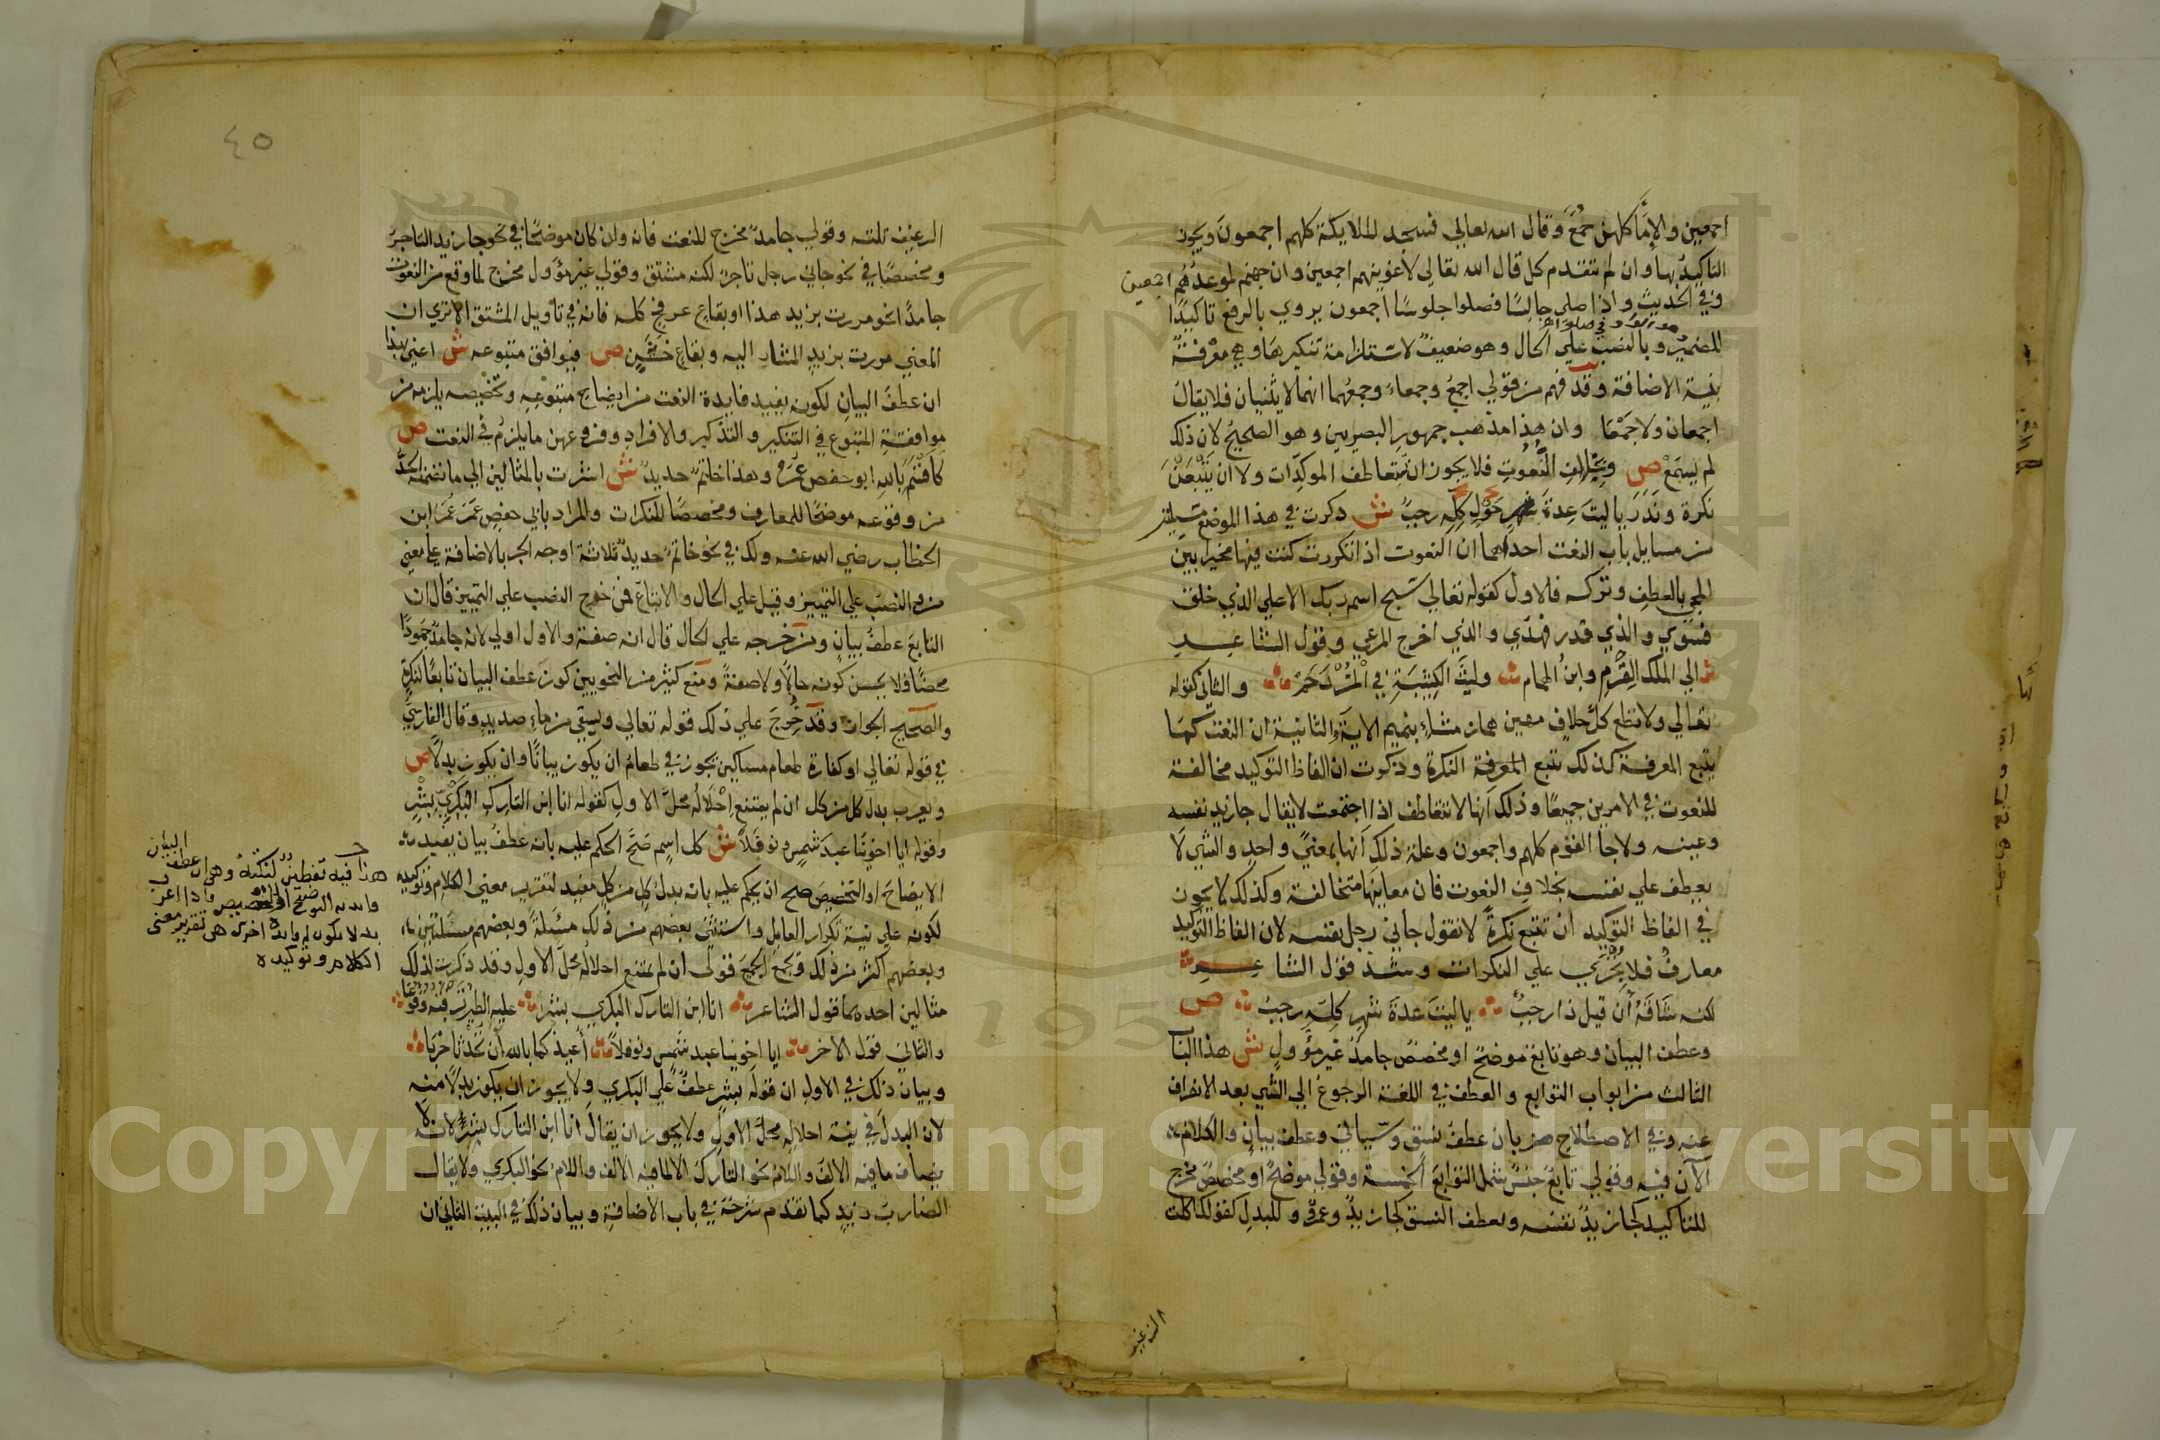 اجمعين والإماكلهن جُمَعَ وقال الله تعالي فسجد الملايكة كلهم اجمعون ويجوز
التاكيدُ بها وان لم يتقدم كل قال الله تعالي لأغوينهم اجمعين وان جهنم لموعدُهُم اجمعين
وفي الحديث واذا صلي جالسًا فصلوا جلوسًا اجمعون يروي بالرفع تاكيدًا
للضمير وبالنصب علي الحال وهو ضعيفٌ لاستلزامه تنكيرها وهي معْرفةٌ
بنية الاضافة وقد فهم من قولي اجمعُ وجمعاءُ وجمعُهما انهما لا يثنيان فلا يقالُ
اجمعان ولا جَمْعَا وان هذا مذهب جمهور البصريين وهو الصحيحُ لان ذلك
لم يسمَعْ ص وبخلاف النُعُوتِ فلا يجوز ان تتعاطف الموكِدّات ولا ان يَتْبَعْنَ
نكرة ونَدَرَ ياليتَ عِدةَ حَوْلٍ كِلِه رجبُ ش ذكرت في هذا الموضع مسيلتين
من مسايل باب النعت احداهما ان النعوت اذا تكررت كنت فيها مخيرا بين
المجي بالعطفِ وتركه فالاول كقوله تعالي سَبِح اسم ربك الاعلي الذي خلق
فسوي والذي قدر فهدي والذي اخرج المرعي وقول الشاعر
الي الملك القَرْمِ وابنُ الهمام وليثَ الكتيبَةِ في المُزْدَحَمْ والثاني كقوله
تعالي ولا تطع كلَّ حلافٍ مهين همازٍ مشاءٍ بنميم الاية والثانية ان النعت كما
يتبع المعرفة كذلك يتبع النكرة وذكرت ان الفاظ التوكيد مخالفة
للنعوت في الامرين جميعًا وذلك أنها لا تتعاطف اذا اجتمعت لا يقال جا زيد نفسه
وعينه ولا جا القوم كلهم واجمعون وعلة ذلك أنها بمعنيً واحدٍ والشي لَا
يعطف علي نفسه بخلافِ النعوت فان معانيها متخالفة وكذلك لا يجوز
في الفاظ التوكيد ان تتبع نكرةً لا تقول جاني رجل نفسه لان الفاظ التوكيد
معارفُ فلا تجري علي النكرات وشذّ قول الشاعر
لكنه شاقَهُ أن قيل ذا رجبٌ ياليتَ عدةَ شهرٍ كلِّه رجبُ ص
وعطف البيان وهو تابعٌ موضحٌ او مخصصٌ جامدٌ غير مؤولٍ ش هذا الباب
الثالث من ابواب التوابع والعطف في اللغة الرجوعُ الي الشي بعد الانصراف
عنه وفي الاصطلاح ضربان عطفُ نسقٍ وسياتي وعطف بيان والكلام
الآن فيه وقولي تابعٌ جنسٌ يشمل التوابعَ الخمسة وقولي موضحٌ او مخصصٌ مخرج
للتاكيد كجا زيدٌ نفسه ولعطف النسق كجا زيدٌ وعمرٌو وللبدلِ كقولك اكلت
الرغيف
٤٥
الرغيف ثلثه وقولي جامدٌ مخرج للنعت فانه وان كان موضحًا في نحو جا زيد التاجرُ
ومخصصًا في نحو جاني رجل تاجرٌ لكنه مشتق وقولي غير مؤول مخرج لما وقع من النعوت
جامدًا نحو مررت بزيد هذا او بقاعٍ عرفجٍ كله فانه في تاويل المشتق الا تري ان
المعني مررت بزيدٍ المشارِ اليه وبقاعٍ خشِنٍ ص فيوافق متبوعه ش اعني بهذا
ان عطفَ البيانِ لكونه يفيد فايدة النعت من ايضاح متبوْعِهِ وتخصيصه يلزمه من
موافقةِ المتبوع في التنكير والتذكير والافرادِ وفروعهن ما يلزمُ في النعت ص
كاقْسَمَ باللهِ ابو حفصٍ عُمَر وهذا خاتمٌ حديدٌ ش اشرت بالمثالين الي ما تضمنه الحدُّ
من وقوعه موضحًا للمعارف ومخصصًا للنكرات والمراد بابي حفصٍ عُمَرَ عُمَرُ ابن
الخطاب رضي الله عنه ولك في نحو خاتمٌ حديدٌ ثلاثة اوجه الجر بالاضافة علي معني
من والنصبُ علي التمييز وقيل علي الحال والاتباع فمن خرج النصب علي التمييز قال ان
التابعَ عطفُ بيان ومن خرجه علي الحال قال انه صفة والاول اولي لانه جامدٌ جمودًا
محضًا فلا يحسن كونه حالًا ولا صفةً ومنع كثير من النحويين كون عطف البيان تابعًا لنكرةٍ
والصحيح الجواز وقد خُرِجَ علي ذلك قوله تعالي ويسقي من ماءٍ صديدٍ وقال الفارسيُّ
في قوله تعالي او كفارة طعام مساكين يجوز في طعامُ ان يكون بيانًا وان يكون بدلًا ص
ويعرب بدل كل من كل ان لم يمتنع إحْلَالُه محلَّ الاول كقوله انا ابن التارك البكْرِيّ بِشْرٍ
وقوله ايا اخوَيْنا عبدَ شَمسٍ ونوفَلَا ش كل اسم صَحَّ الحكم عليه بانه عطفُ بيان يفيد
الايضاحَ او التخصيصَ صح ان يحكم عليه بانه بدلُ كلٍ من كلٍ مفيد لتقرير معني الكلام وتوكيده
لكونه علي نية تكرار العامل واستثني بعضهم من ذلك مسئلةً وبعضهم مسئلتين
وبعضهم اكثر من ذلك ويجمعُ الجميع قولي ان لم يمتنع احلاله محلَّ الاول وقد ذكرت لذلك
مثالين احدهما قول الشاعر انا ابن التارك البكري بشرٍ عليه الطيرُ ترقبُه وُقُوعًا
والثاني قول الاخر ايا اخوينا عبد شمس ونوفلًا أُعيذُكما بالله ان تُحْدِثَا حَرْبَا
وبيان ذلك في الاول ان قوله بشرٍ عطفٌ علي البكري ولا يجوز ان يكون بدلًا منه
لان البدلَ في نية احلاله محلَّ الاولِ ولا يجوز ان يقالَ انا ابن التارك بشرٍ لانه لا
يضاف ما فيه الالف واللامُ نحو التاركُ الا لما فيه الالف واللامُ نحو البكري ولا يقال
الضاربُ زيدٍ كما تقدم شرحُهُ في باب الاضافة وبيان ذلك في البيت الثاني ان
هذا فيه تفطين لنكتة وهي ان عطف البيان
فايدته التوضيح او التخصيص واذا اعرب
بدلا يكون له فايدة اخرى هي تقرير معنى
الكلام وتوكيده
Copyright © King Saud University
1957